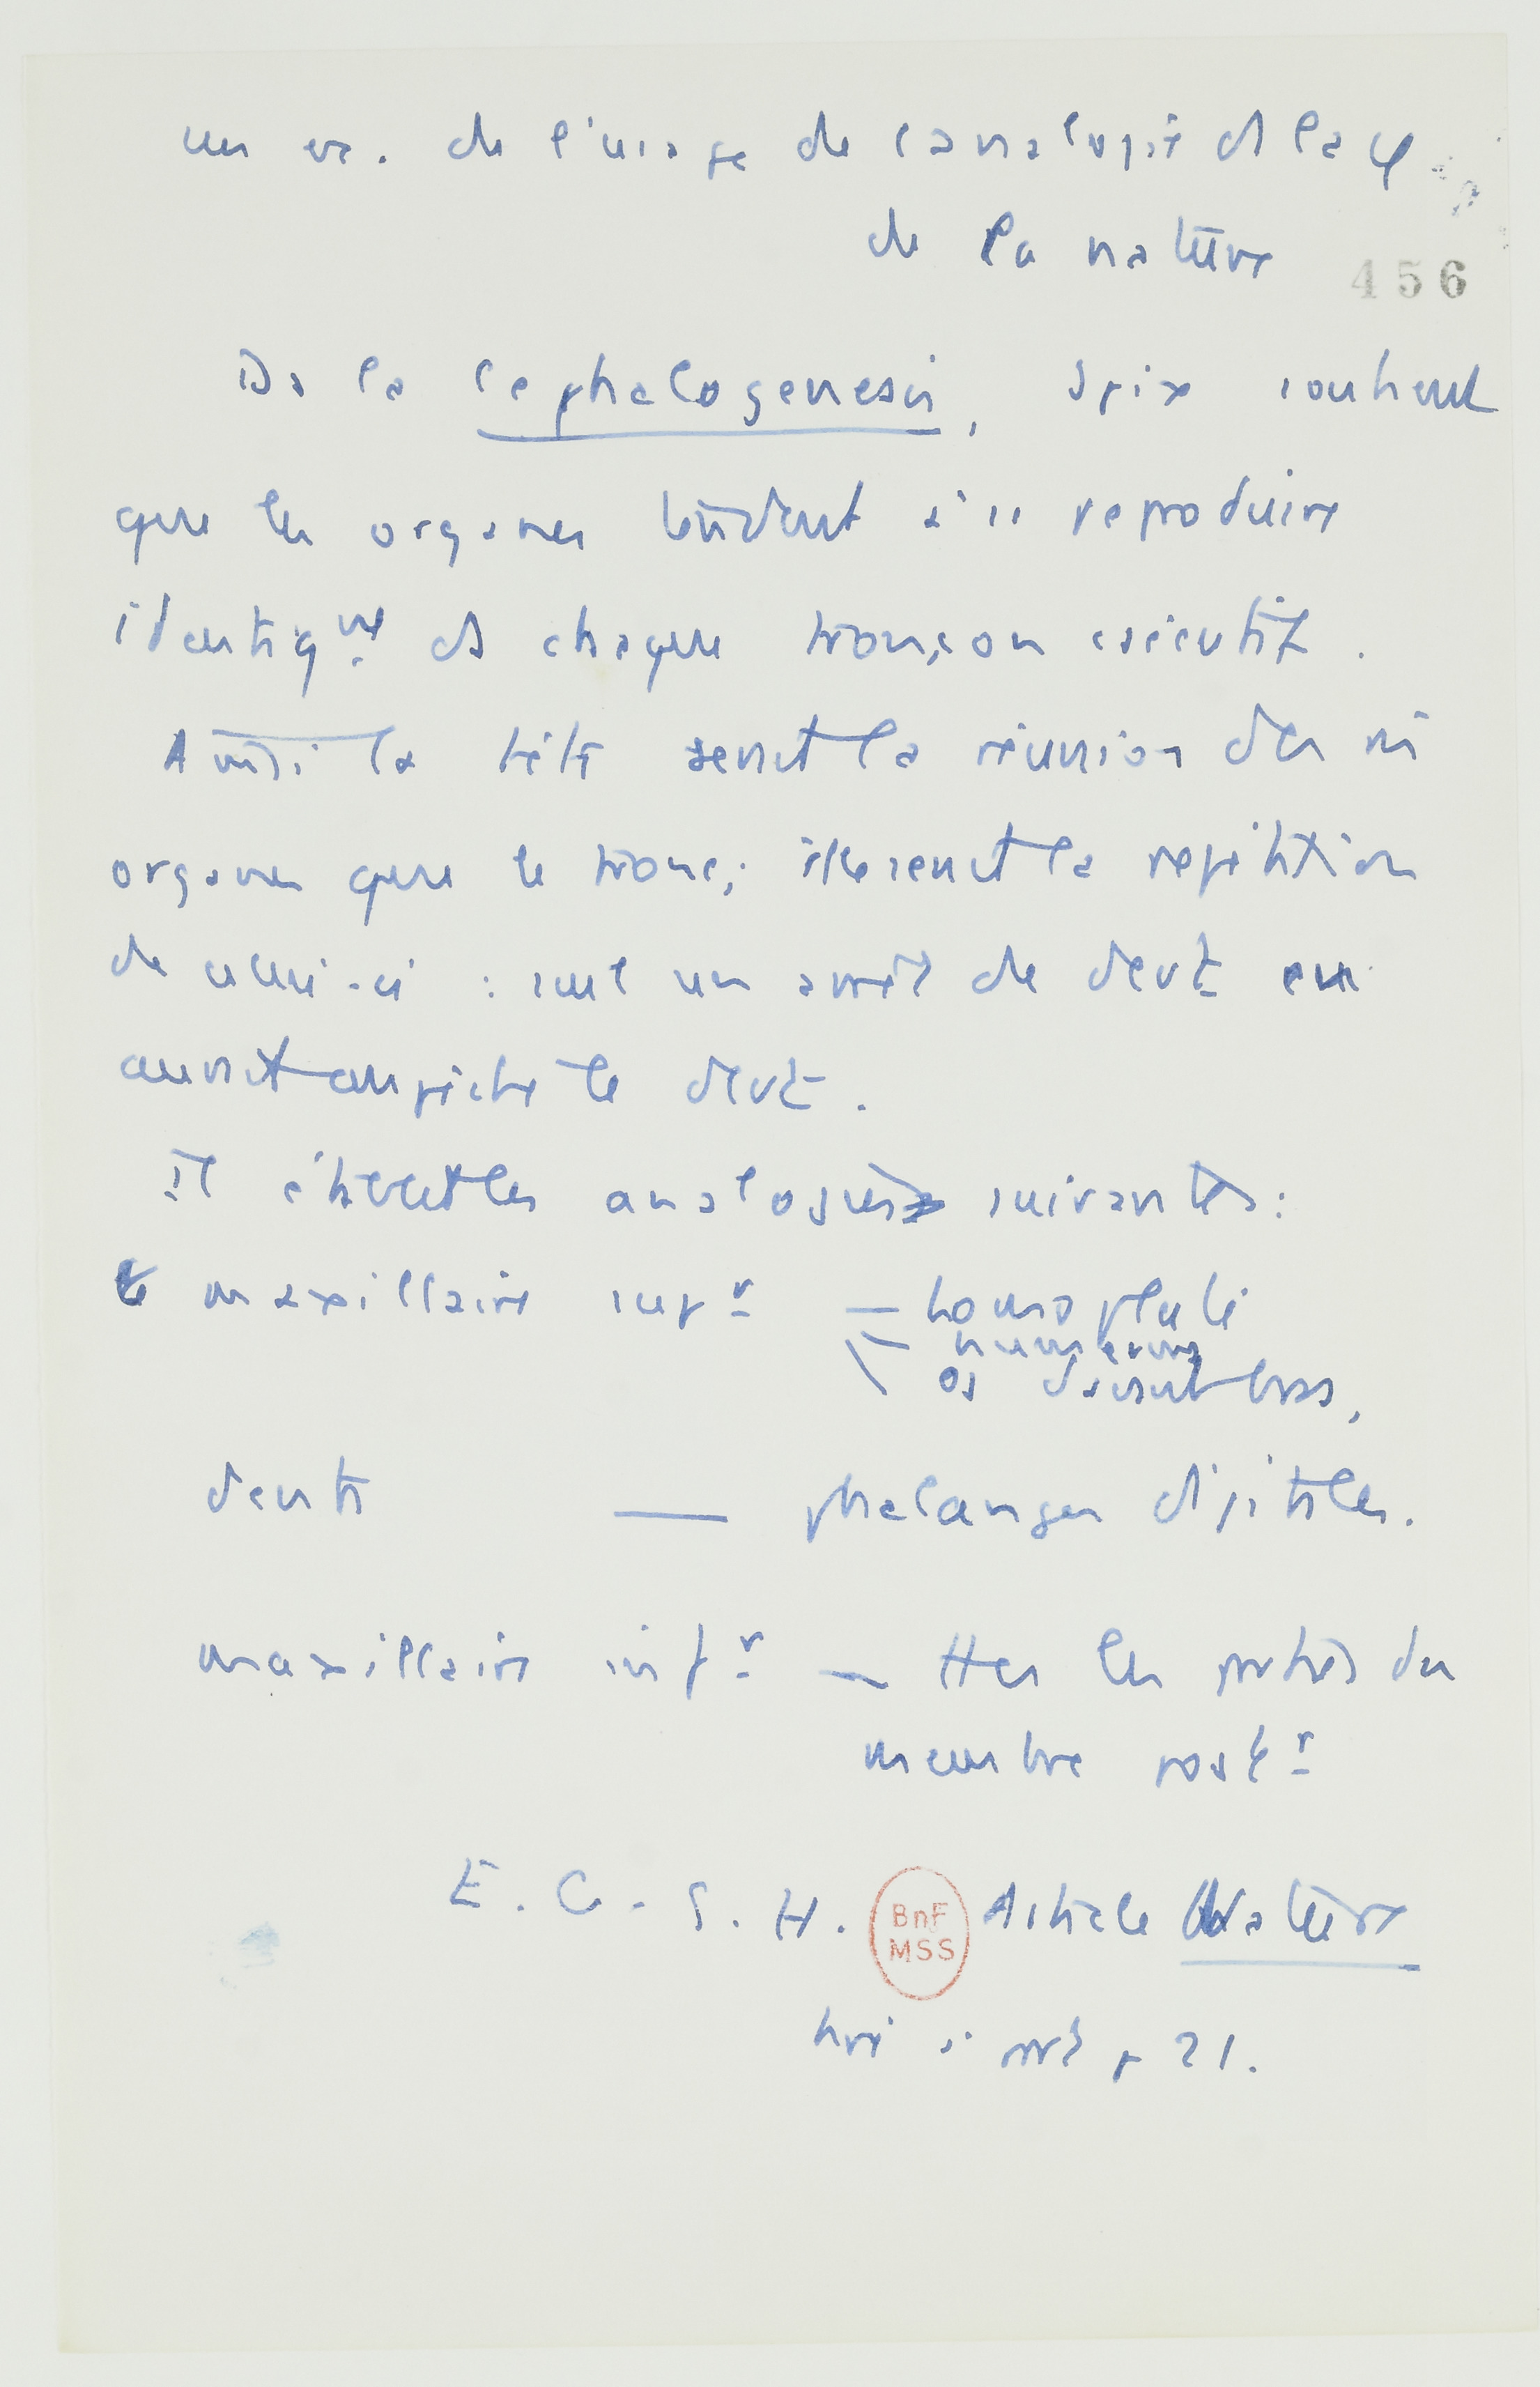 un ex. de l'usage de l'analogie ds la φ
de la nature
456
Ds la Cephalogenesis, Spix soutient
que les organes tendent à se reproduire
identiqut ds chaque tronçon consécutif.
Ainsi la tête serait la réunion des mêmes
organes que le tronc; elle serait la répétition
de celui-ci : seul un arrêt de devt en
aurait empêché le devt.
Il établit les analogies suivantes :
le maxillaire supr — homoplate
humerus
os d'avant bras,
dents — phalanges digitales.
maxillaire infr — ttes les parties du
membre postr
E. G. S. H. BnF MSS Article Nature
p 21.